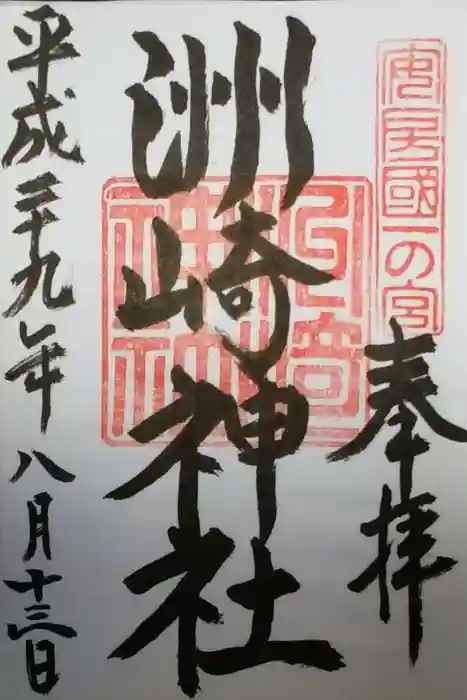 安房國一の宮
奉拝
洲崎神社
平成二十九年八月十三日